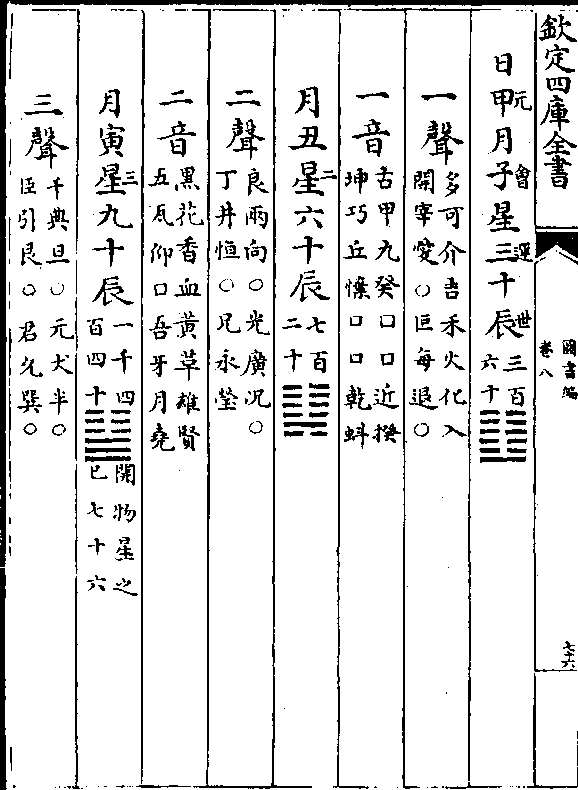 欽定四庫全書
圖書編
卷八
七六
日甲元月子會星三十運辰世三百
六十
一聲多可介吾禾火化入
開宰愛○臣每退○
一音古甲九癸□□近揆
坤巧丘□□乾蚪
月丑星二六十辰七百
二十
二聲良兩向○光廣況○
丁井恒○兄永瑩
二音黑花香血黄草雄賢
五瓦仰口吾牙月堯
月寅星三九十辰一千四
百四十
開物星之
巳七十六
三聲千典旦○元犬半○
臣引艮○君允巽○